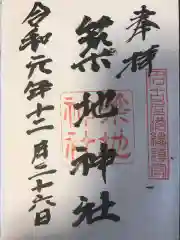 奉拝
築地神社
築地
神社
令和元年十二月二十六日